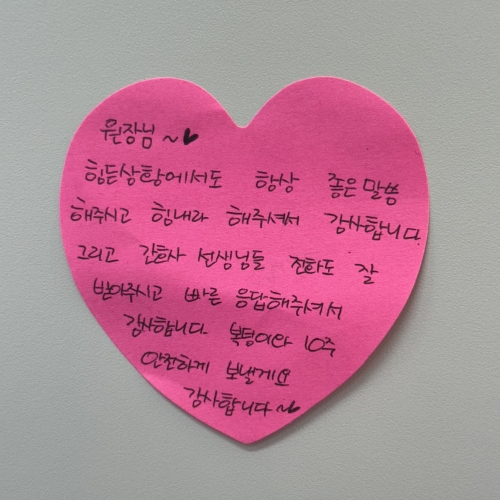 원장님 ~♥
힘든상황에서도 항상 좋은말씀
해주시고 힘내라 해주셔서 감사합니다.
그리고 간호사 선생님들 전화도 잘
받아주시고 빠른 응답해주셔서
감사합니다 복덩이와 10주
안전하게 보낼게요
감사합니다~♥